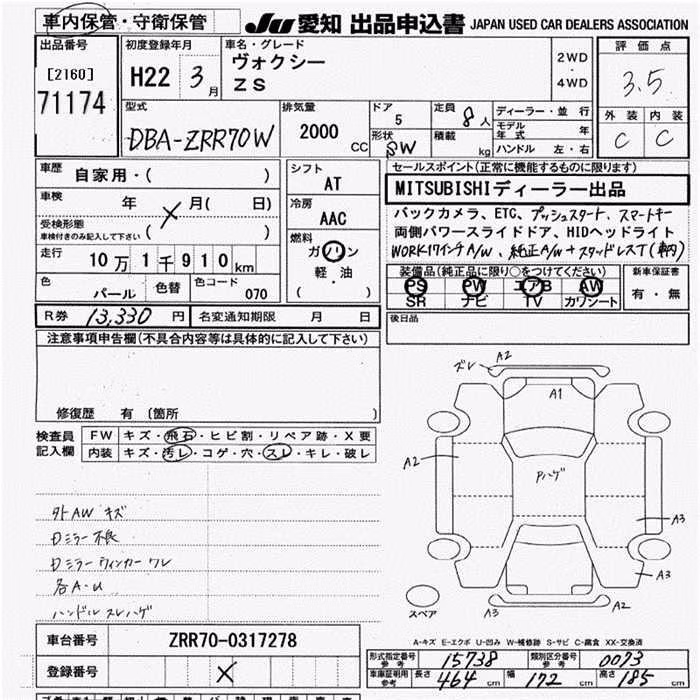 車内保管・守衛保管
JU 愛知 出品申込書 JAPAN USED CAR DEALERS ASSOCIATION
出品番号
[2160]
71174
初度登録年月
H22 3 月
車名・グレード
ヴォクシー
ZS
2WD
・
4WD
評価点
3.5
外装 内装
C C
型式
DBA-ZRR70W
排気量
2000 CC
ドア
5
形状
8W
定員
8 人
積載
kg
ディーラー・並行
モデル年式 年
ハンドル 左・右
車歴
自家用・( )
車検
年 月( 日)
受検形態
車検付きのみ記入して下さい ( )
走行
10万1千910km
色
パール
色替
色コード
070
シフト
AT
冷房
AAC
燃料
ガソリン
軽・油
( )
セールスポイント(正常に機能するものに限ります)
MITSUBISHIディーラー出品
バックカメラ、ETC、プッシュスタート、スマートキー
両側パワースライドドア、HIDヘッドライト
WORK17インチA/W、純正A/W+スタッドレスT(車内)
装備品(純正品に限り○をつけてください)
PS PW エアB AW
SR ナビ TV カワシート
新車保証書
有・無
R券 13,330 円
名変通知期限 月 日
後日品
注意事項申告欄(不具合内容等は具体的に記入して下さい)
修復歴 有 〔箇所 )
検査員
記入欄
FW キズ・飛石・ヒビ割・リペア跡・X要
内装 キズ・汚レ・コゲ・穴・スレ・キレ・破レ
外AW キズ
Dミラー不良
Dミラーウィンカーワレ
各A-U
ハンドルスレハゲ
ズレ
A2
A1
A2
Pハゲ
A3
A3
スペア
A3
A2
A-キズ E-エクボ U-凹み W-補修跡 S-サビ C-腐食 XX-交換済
車台番号
ZRR70-0317278
登録番号
形式指定番号
参考
15738
類別区分番号
参考
0073
車庫証明用
参考
長さ 464 cm
幅 172 cm
高さ 185 cm